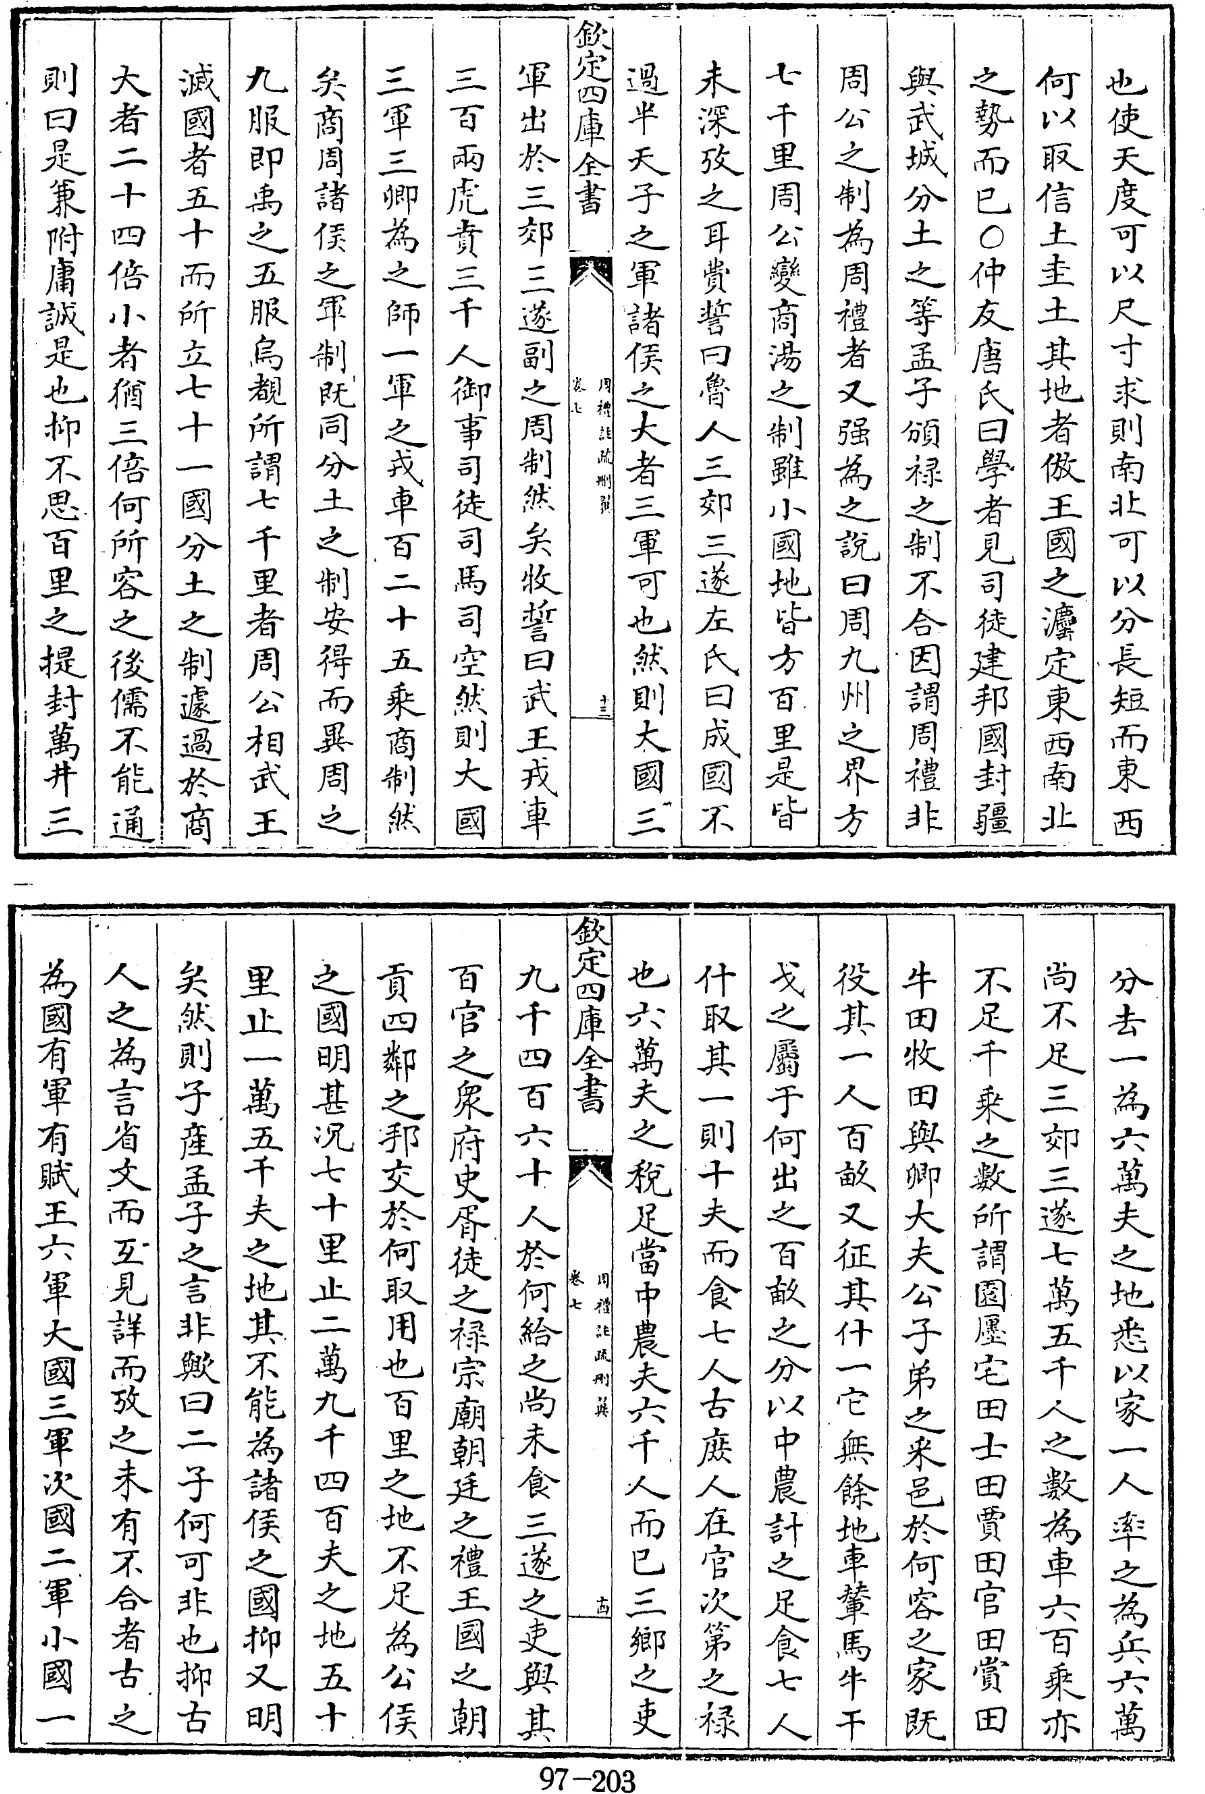 也使天度可以尺寸求則南北可以分長短而東西
何以取信土圭土其地者倣王國之瀍定東西南北
之勢而已○仲友唐氏曰學者見司徒建邦國封疆
與武城分土之等孟子頒禄之制不合因謂周禮非
周公之制為周禮者又强為之說曰周九州之界方
七千里周公變商湯之制雖小國地皆方百里是皆
未深攷之耳費誓曰魯人三郊三遂左氏曰成國不
過半天子之軍諸侯之大者三軍可也然則大國三
欽定四庫全書
周禮註疏刪翼
卷七
十三
軍出於三郊三遂副之周制然矣牧誓曰武王戎車
三百兩虎賁三千人御事司徒司馬司空然則大國
三軍三卿為之師一軍之戎車百二十五乘商制然
矣商周諸侯之軍制既同分土之制安得而異周之
九服即禹之五服烏覩所謂七千里者周公相武王
滅國者五十而所立七十一國分土之制遽過於商
大者二十四倍小者猶三倍何所容之後儒不能通
則曰是兼附庸誠是也抑不思百里之提封萬井三
分去一為六萬夫之地悉以家一人率之為兵六萬
尚不足三郊三遂七萬五千人之數為車六百乘亦
不足千乘之數所謂園廛宅田士田賈田官田賞田
牛田牧田與卿大夫公子弟之釆邑於何容之家既
役其一人百畝又征其什一它無餘地車輦馬牛干
戈之屬于何出之百畝之分以中農計之足食七人
什取其一則十夫而食七人古庶人在官次第之禄
也六萬夫之稅足當中農夫六千人而已三鄉之吏
欽定四庫全書
周禮註疏刪翼
卷七
十四
九千四百六十人於何給之尚未食三遂之吏與其
百官之衆府史胥徒之禄宗廟朝廷之禮王國之朝
貢四鄰之邦交於何取用也百里之地不足為公侯
之國明甚况七十里止二萬九千四百夫之地五十
里止一萬五千夫之地其不能為諸侯之國抑又明
矣然則子產孟子之言非歟曰二子何可非也抑古
人之為言省文而互見詳而攷之未有不合者古之
為國有軍有賦王六軍大國三軍次國二軍小國一
97-203